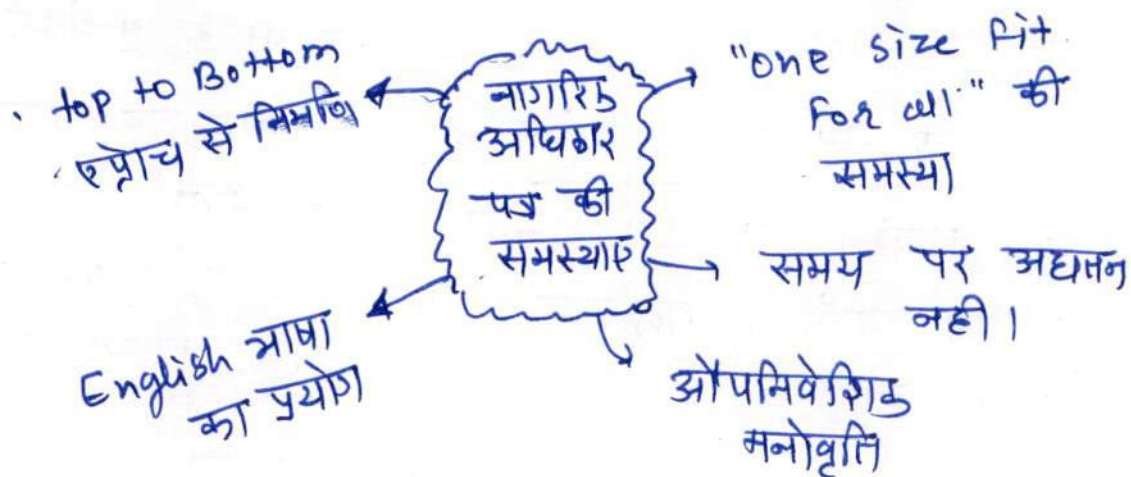 top to Bottom
एप्रोच से निर्माण
नागरिक
अधिकार
पत्र की
समस्याएं
"one size fit
For all" की
समस्या
समय पर अद्यतन
नही।
English भाषा
का प्रयोग
औपनिवेशिक
मनोवृति